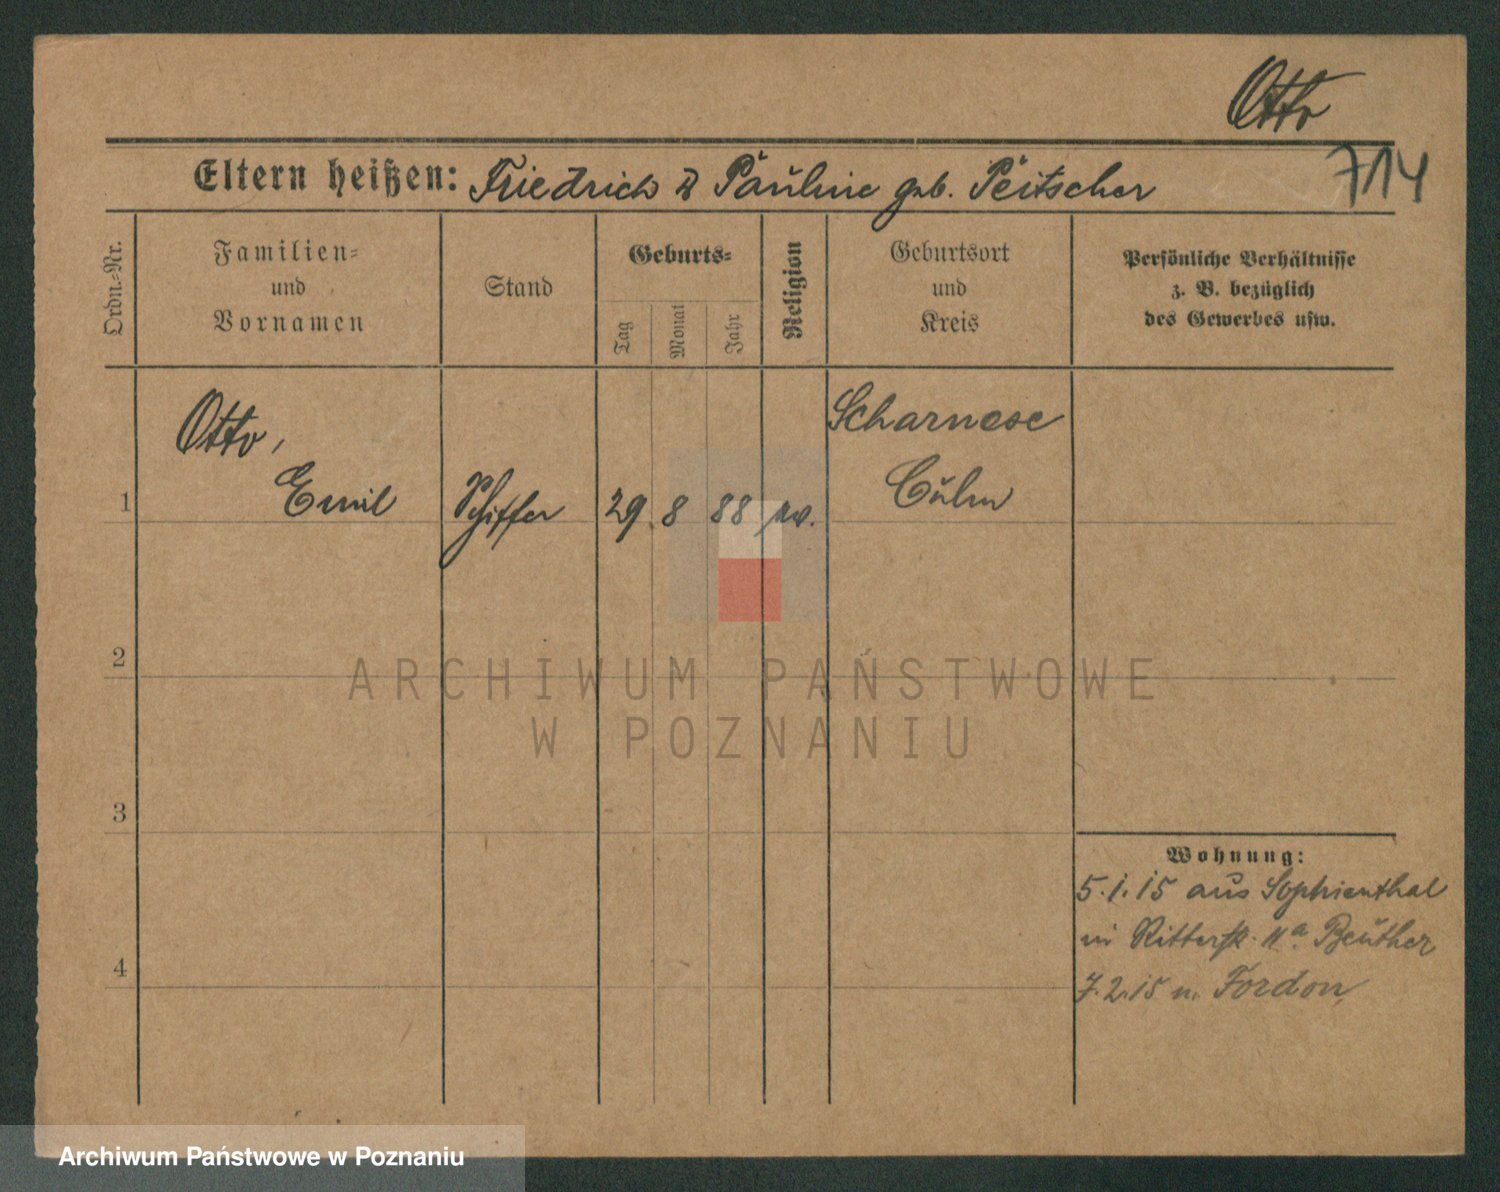 Otto
714
Eltern heißen: Friedrich & Pauline geb. Peitscher
Ordn.-Nr.
Familien-
und
Vornamen
Stand
Geburts-
Tag
Monat
Jahr
Religion
Geburtsort
und
Kreis
Persönliche Verhältnisse
z. B. bezüglich
des Gewerbes usw.
Otto,
Scharnese
1 Emil Schiffer 29 8 88 ev. Culm
2
3
4
Wohnung:
5.1.15 aus Sophienthal
in Ritterstr. 11a Beuther
7.2.15 n. Fordon
ARCHIWUM PAŃSTWOWE
W POZNANIU
Archiwum Państwowe w Poznaniu